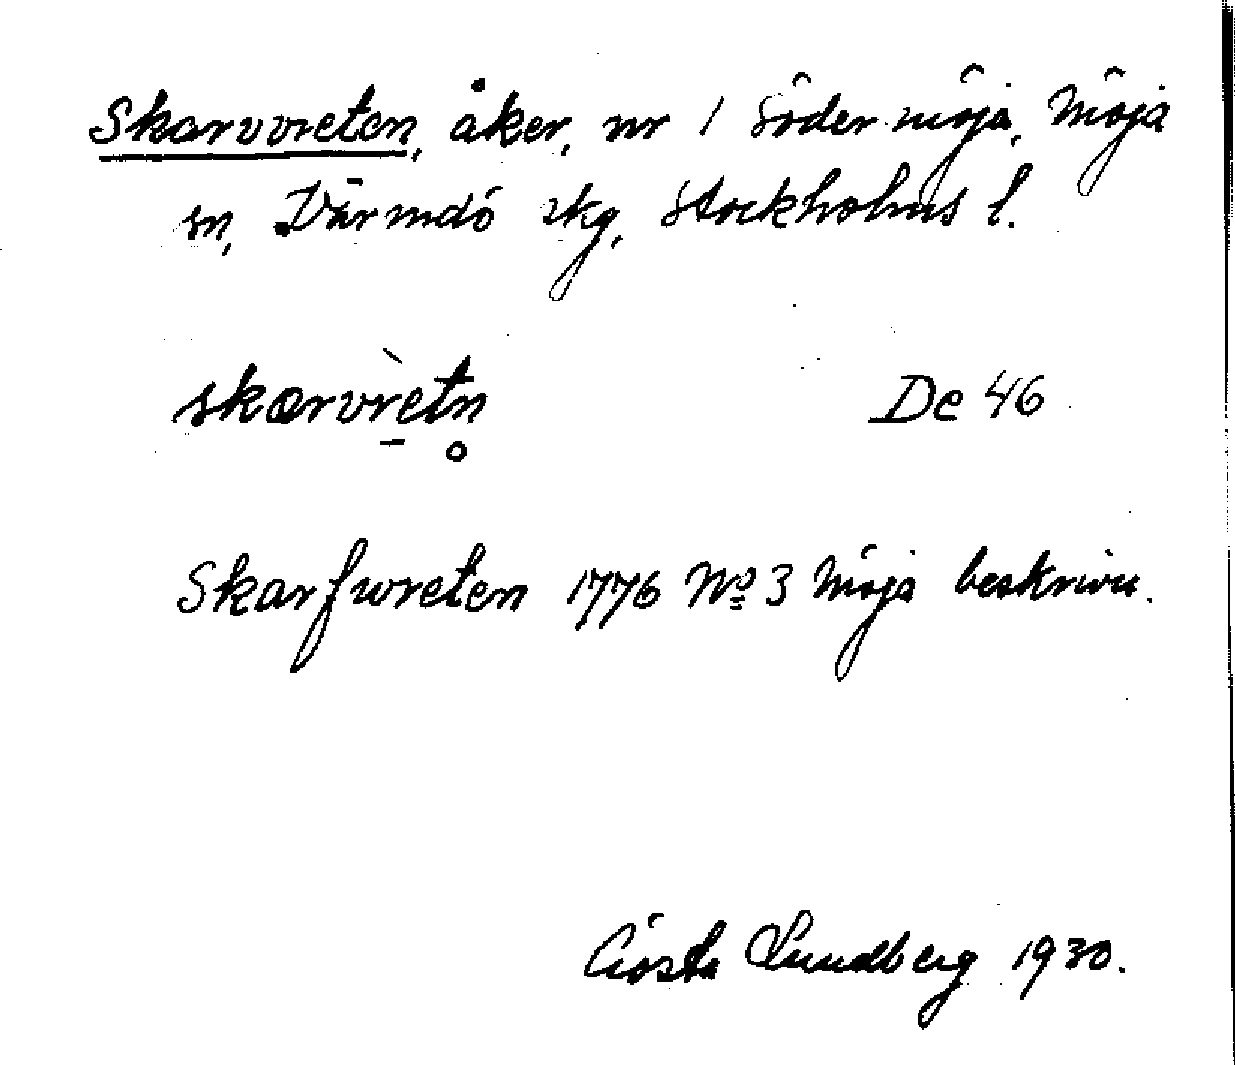 Skarvvreten, åker, nr 1 Södermöja, Möja
sn, Värmdö skg, Stockholms l.
skarvrètn̥
De 46
Skarfwreten 1776 No 3 Möja beskrivn.
Gösta Lundberg 1930.